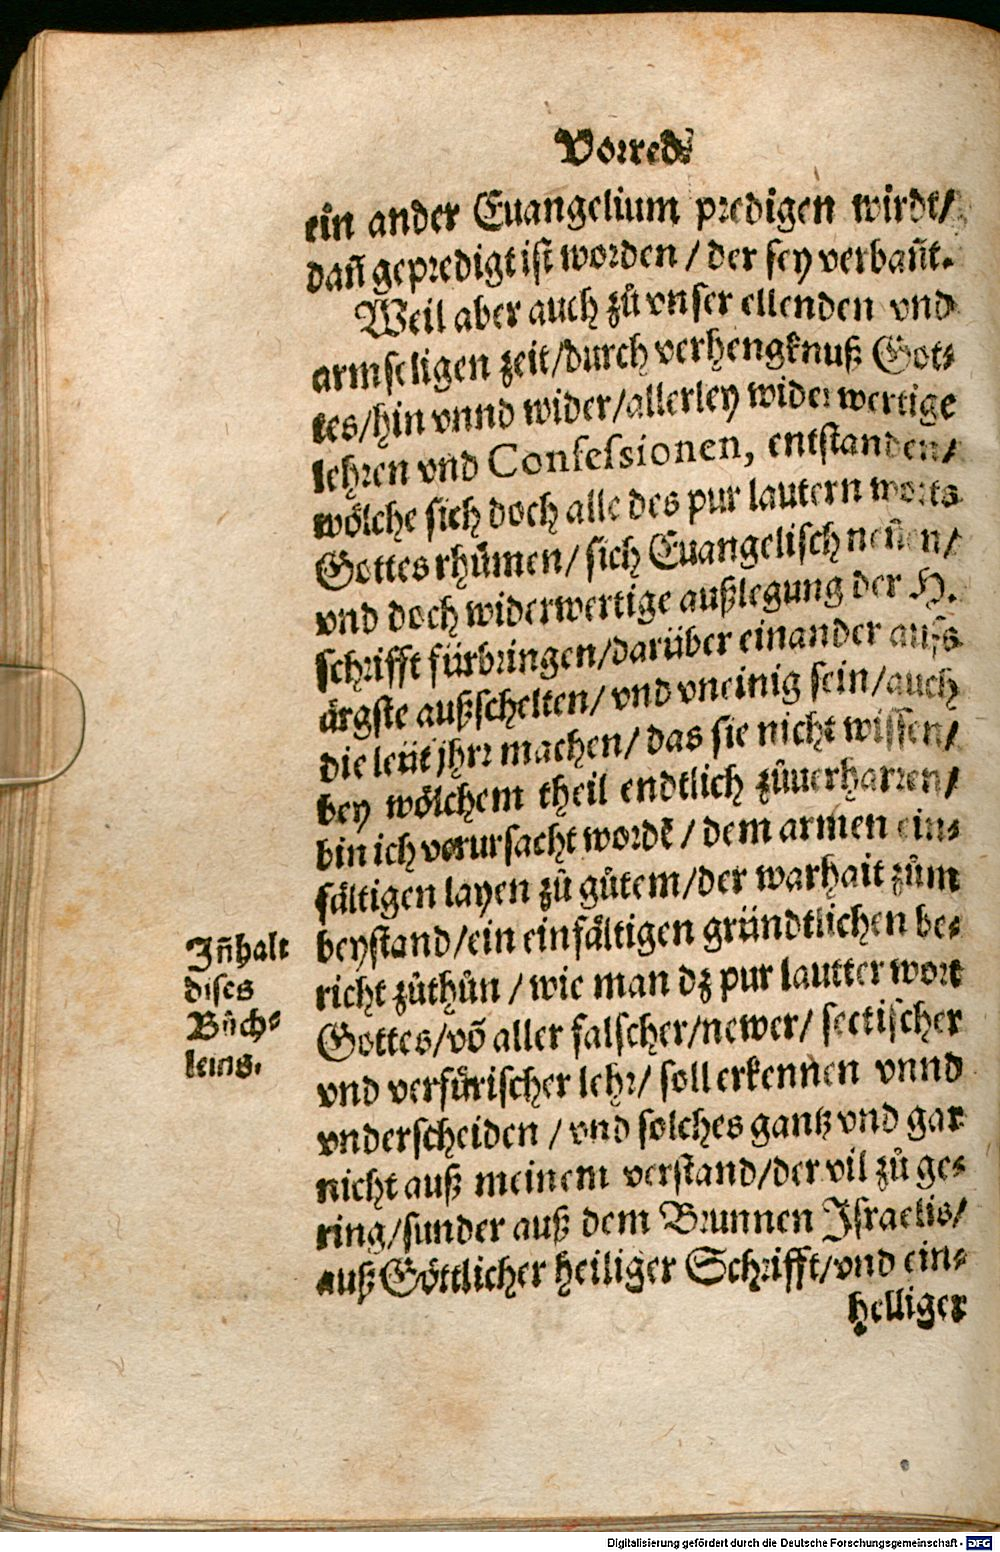 Vorred.
ein ander Euangelium predigen wirdt/
dañ gepredigt ist worden / der sey verbañt.
Weil aber auch zů vnser ellenden vnd
armseligen zeit/durch verhengknuß Got-
tes/hin vnnd wider/allerley widerwertige
lehren vnd Confessionen, entstanden/
wölche sich doch alle des pur lautern worts
Gottes rhůmen/ sich Euangelisch neñen/
vnd doch widerwertige außlegung der H.
schrifft fürbringen/darüber einander aufs
ärgste außschelten/ vnd vneinig sein/auch
die leüt jhrr machen/ das sie nicht wissen/
bey wölchem theil endtlich zůuerharren/
bin ich verursacht wordẽ / dem armen ein-
fältigen layen zů gůtem/der warhait zům
beystand/ein einfältigen gründtlichen be-
richt zůthůn / wie man dz pur lautter wort
Gottes/võ aller falscher/newer/ sectischer
vnd verfůrischer lehr/ soll erkennen vnnd
vnderscheiden / vnd solches gantz vnd gar
nicht auß meinem verstand/der vil zů ge-
ring/sunder auß dem Brunnen Israelis/
auß Göttlicher heiliger Schrifft/vnd ein-
helliger
Jñhalt
dises
Bůch-
leins.
Digitalisierung gefördert durch die Deutsche Forschungsgemeinschaft - DFG